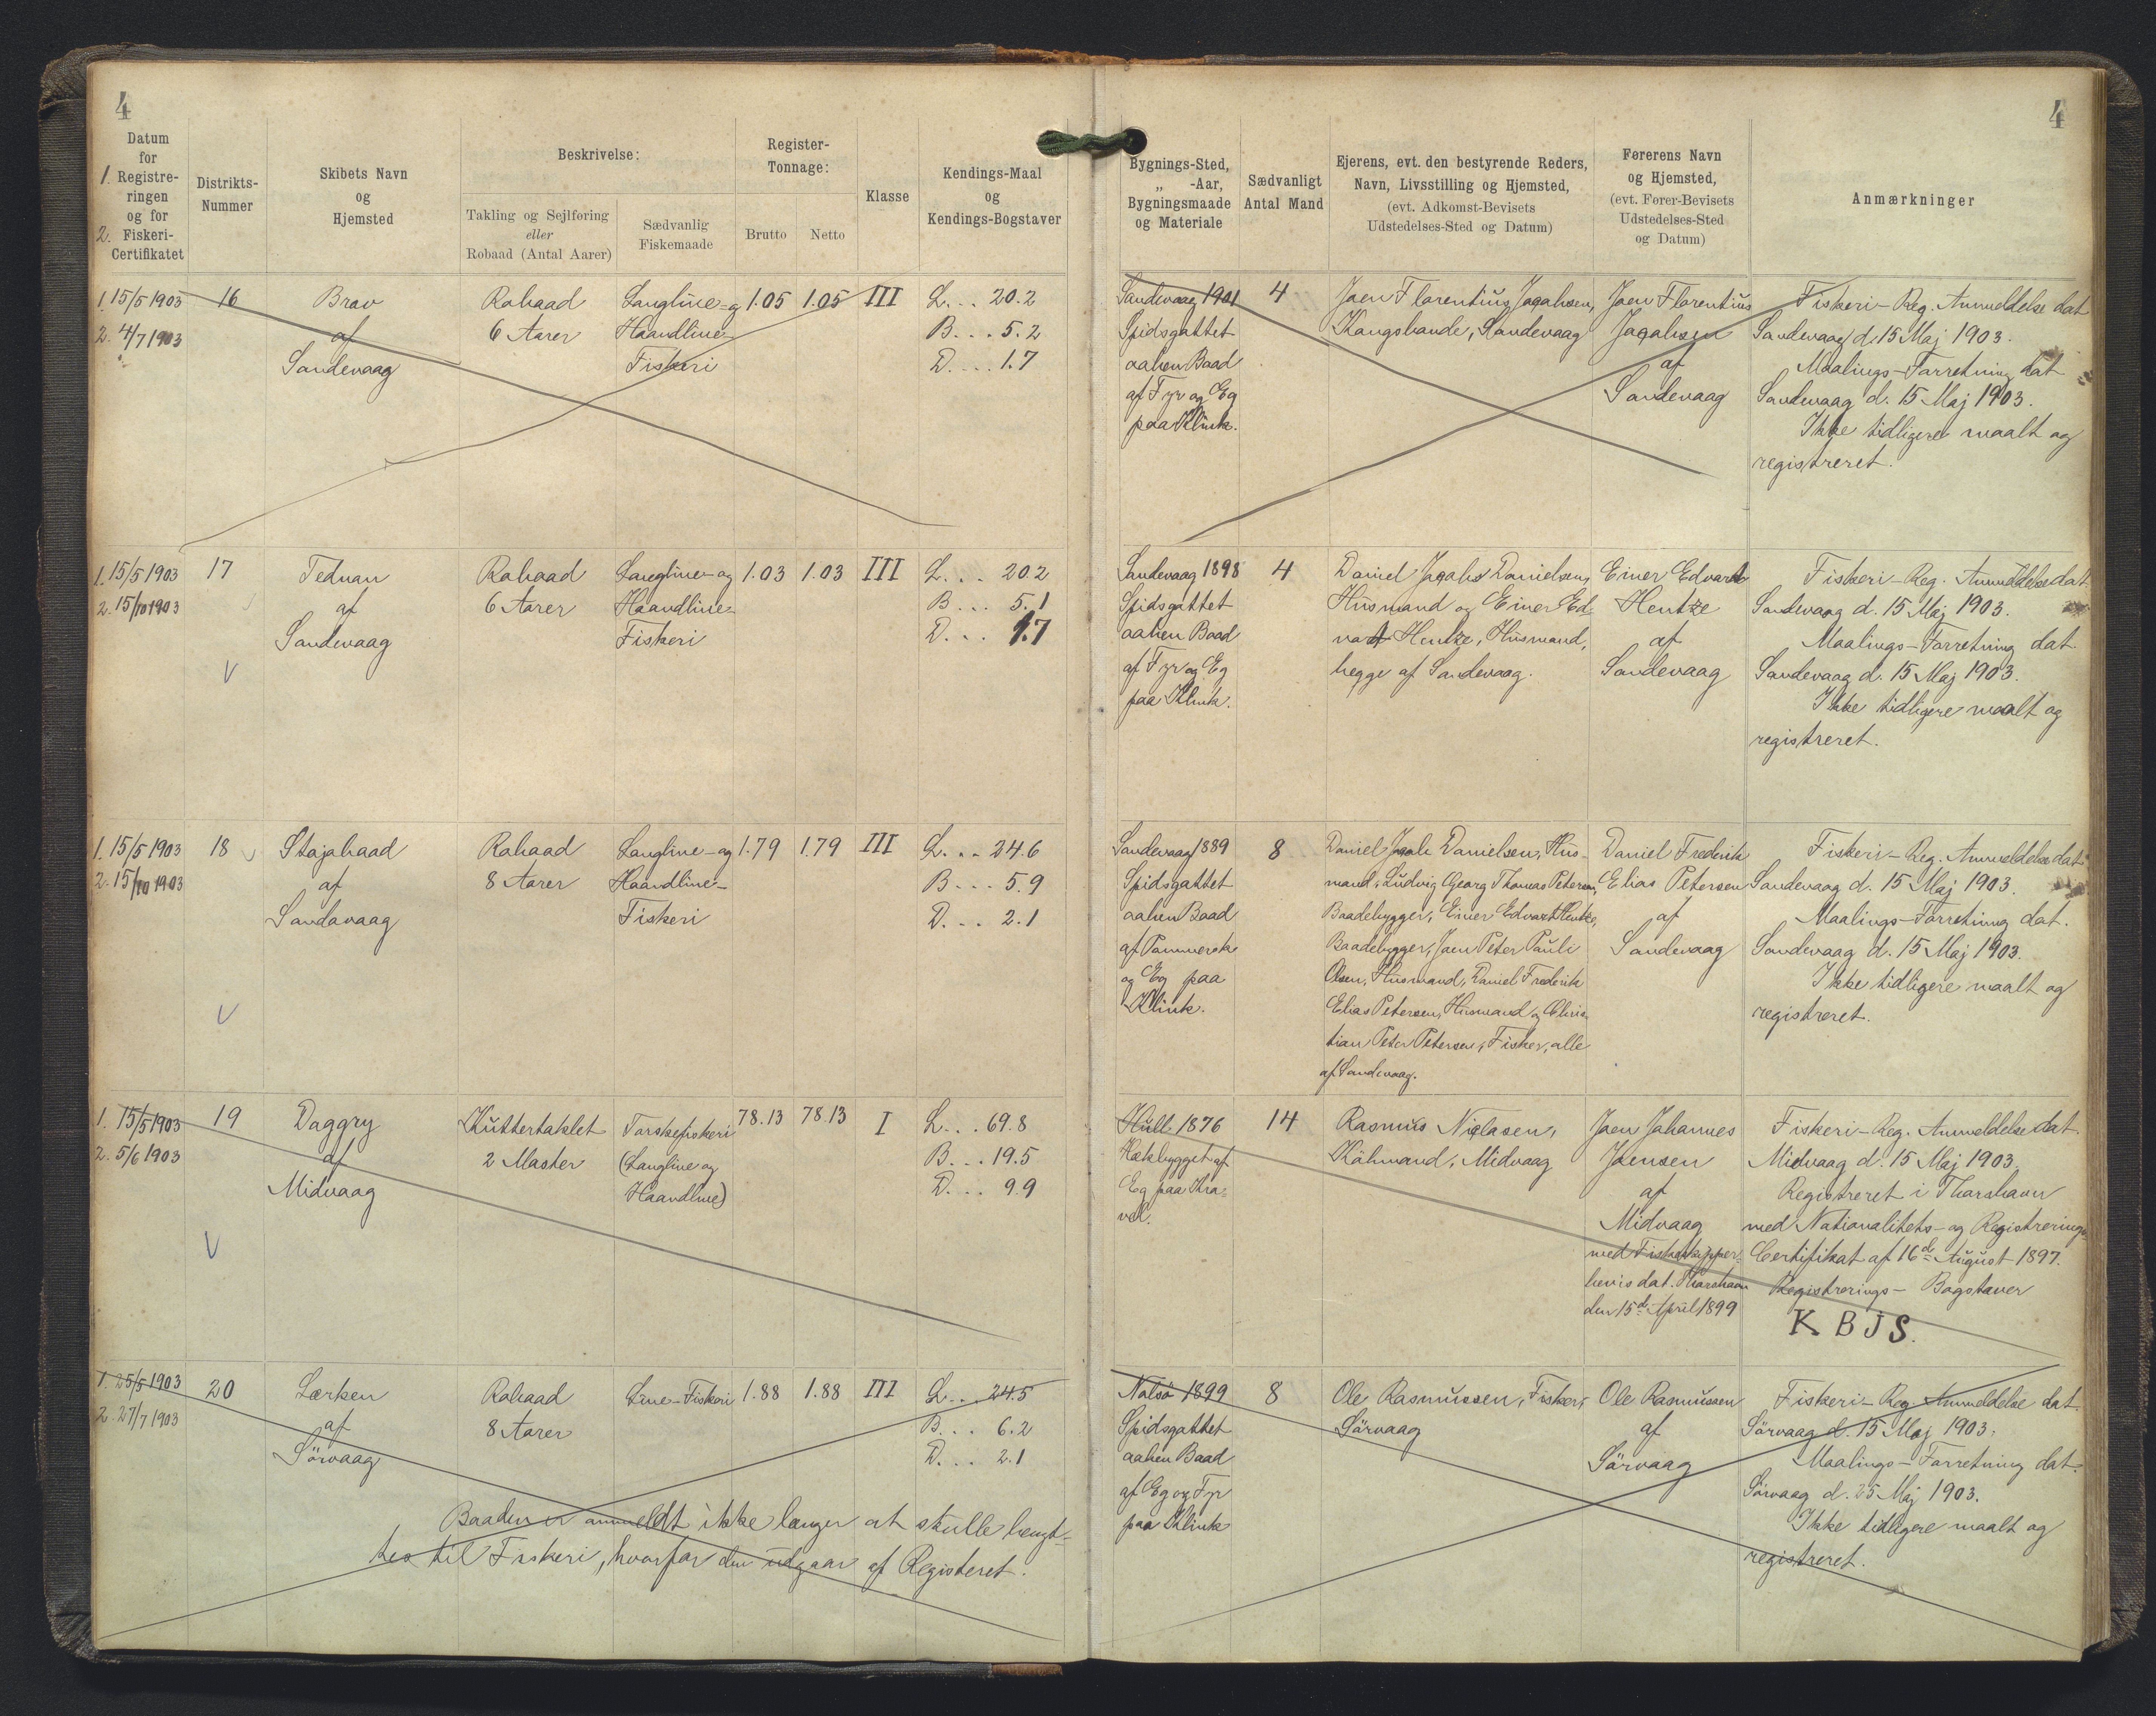 4
4
1. Datum for Registreringen og for
2. Fiskeri-Certifikatet
Distrikts-Nummer
Skibets Navn og Hjemsted
Beskrivelse:
Takling og Sejlføring eller Robaad (Antal Aarer)
Sædvanlig Fiskemaade
Register-Tonnage:
Brutto
Netto
Klasse
Kendings-Maal og Kendings-Bogstaver
Bygnings-Sted, „ -Aar, Bygningsmaade og Materiale
Sædvanligt Antal Mand
Ejerens, evt. den bestyrende Reders, Navn, Livsstilling og Hjemsted, (evt. Adkomst-Bevisets Udstedelses-Sted og Datum)
Førerens Navn og Hjemsted, (evt. Fører-Bevisets Udstedelses-Sted og Datum)
Anmærkninger
1. 15/5 1903
2. 4/7 1903
16
Brav
af
Sandevaag
Robaad
6 Aarer
Langline- og
Haandline-
Fiskeri
1.05
1.05
III
L... 20.2
B... 5.2
D.... 1.7
Sandevaag 1901
Spidsgattet
aaben Baad
af Fyr og Eg
paa Klink.
4
Joen Florentius Jogalsen,
Kongsbonde, Sandevaag
Joen Florentius
Jogalsen
af
Sandevaag
Fiskeri-Reg. Anmeldelse dat
Sandevaag d. 15 Maj 1903.
Maalings-Forretning dat
Sandevaag d. 15 Maj 1903.
Ikke tidligere maalt og
registreret.
1. 15/5 1903
2. 15/10 1903
17
V
af
Sandevaag
Robaad
6 Aarer
Langline- og
Haandline-
Fiskeri
1.03
1.03
III
L... 20.2
B... 5.1
D... 1.7
Sandevaag 1898
Spidsgattet
aaben Baad
af Fyr og Eg
paa Klink.
4
Daniel Danielsen,
Husmand og Einer Ed-
vart Hentze, Husmand,
begge af Sandevaag.
Einer Edvart
Hentze
af
Sandevaag
Fiskeri-Reg. Anmeldelse dat
Sandevaag d. 15 Maj 1903.
Maalings-Forretning dat
Sandevaag d. 15 Maj 1903.
Ikke tidligere maalt og
registreret.
1. 15/5 1903
2. 15/10 1903
18
V
Stojabaad
af
Sandavaag
Robaad
8 Aarer
Langline- og
Haandline-
Fiskeri
1.79
1.79
III
L... 24.6
B... 5.9
D... 2.1
Sandevaag 1889
Spidsgattet
aaben Baad
af
og Eg paa
Klink.
8
Daniel Danielsen, Hus-
mand, Ludvig Georg Thomas Petersen,
Baadebygger, Einer Edvart Hentze,
Baadebygger, Joen Peter Pauli
Olsen, Husmand, Daniel Frederik
Elias Petersen, Husmand og Chris-
tian Peter Petersen, Fisker, alle
af Sandevaag.
Daniel Frederik
Elias Petersen
af
Sandevaag
Fiskeri-Reg. Anmeldelse dat
Sandevaag d. 15 Maj 1903.
Maalings-Forretning dat.
Sandevaag d. 15 Maj 1903.
Ikke tidligere maalt og
registreret.
1. 15/5 1903
2. 5/6 1903
19
V
Daggry
af
Midvaag
Kuttertaklet
2 Master
Torskefiskeri
(Langline og
Haandline)
78.13
78.13
I
L... 69.8
B... 19.5
D... 9.9
Hull 1876
Hækbygget af
Eg paa Kra-
vel.
14
Rasmus Niclasen,
Købmand, Midvaag
Joen Johannes
Joensen
af
Midvaag
med Fiskeskipper-
bevis dat. Thorshavn
den 15de April 1899
Fiskeri-Reg. Anmeldelse dat.
Midvaag d. 15 Maj 1903.
Registreret i Thorshavn
med Nationalitets- og Registrerings
Certifikat af 16de August 1897.
Registrerings-Bogstaver
K B J S.
1. 25/5 1903
2. 27/7 1903
20
Lærken
af
Sörvaag
Robaad
8 Aarer
Line-Fiskeri
1.88
1.88
III
L... 24.5
B... 6.2
D... 2.1
Baaden er anmeldt ikke længer at skulle benyt-
tes til Fiskeri, hvorfor den udgaar af Registeret.
Nolsö 1899
Spidsgattet
aaben Baad
af Eg og Fyr
paa Klink
8
Ole Rasmussen, Fisker,
Sörvaag
Ole Rasmussen
af
Sörvaag
Fiskeri-Reg Anmeldelse dat.
Sörvaag d. 15 Maj 1903.
Maalings-Forretning dat.
Sörvaag d. 25 Maj 1903.
Ikke tidligere maalt og
registreret.